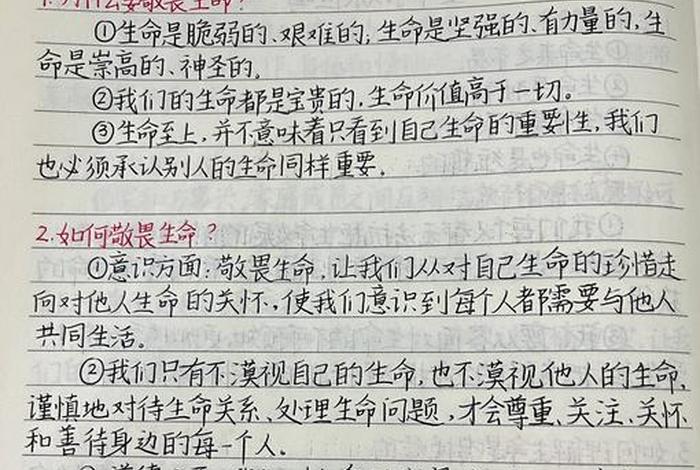 1.为什么要敬畏生命？
①生命是脆弱的、艰难的；生命是坚强的、有力量的，生
命是崇高的、神圣的。
②我们的生命都是宝贵的，生命价值高于一切。
③生命至上，并不意味着只看到自己生命的重要性，我们
也必须承认别人的生命同样重要。
2.如何敬畏生命？
①意识方面：敬畏生命，让我们从对自己生命的珍惜走
向对他人生命的关怀，使我们意识到每个人都需要与他人
共同生活。
②我们只有不漠视自己的生命，也不漠视他人的生命，
谨慎地对待生命关系、处理生命问题，才会尊重、关注、关怀
和善待身边的每一个人。